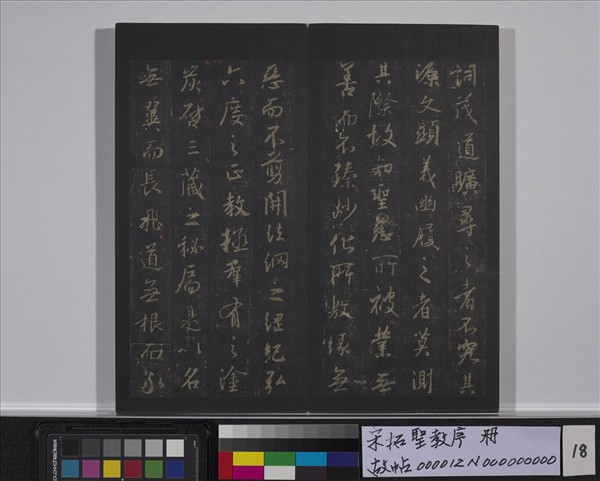 詞茂道曠尋之者不究其
源文顯義幽履之者莫測
其際故知聖慈所被業無
善而不臻妙化所敷緣無
惡而不剪開法網之綱紀弘
六度之正教拯群有之塗
炭啟三藏之秘扃是以名
無翼而長飛道無根而永
宋拓聖教序 冊
故帖000012N000000000
18